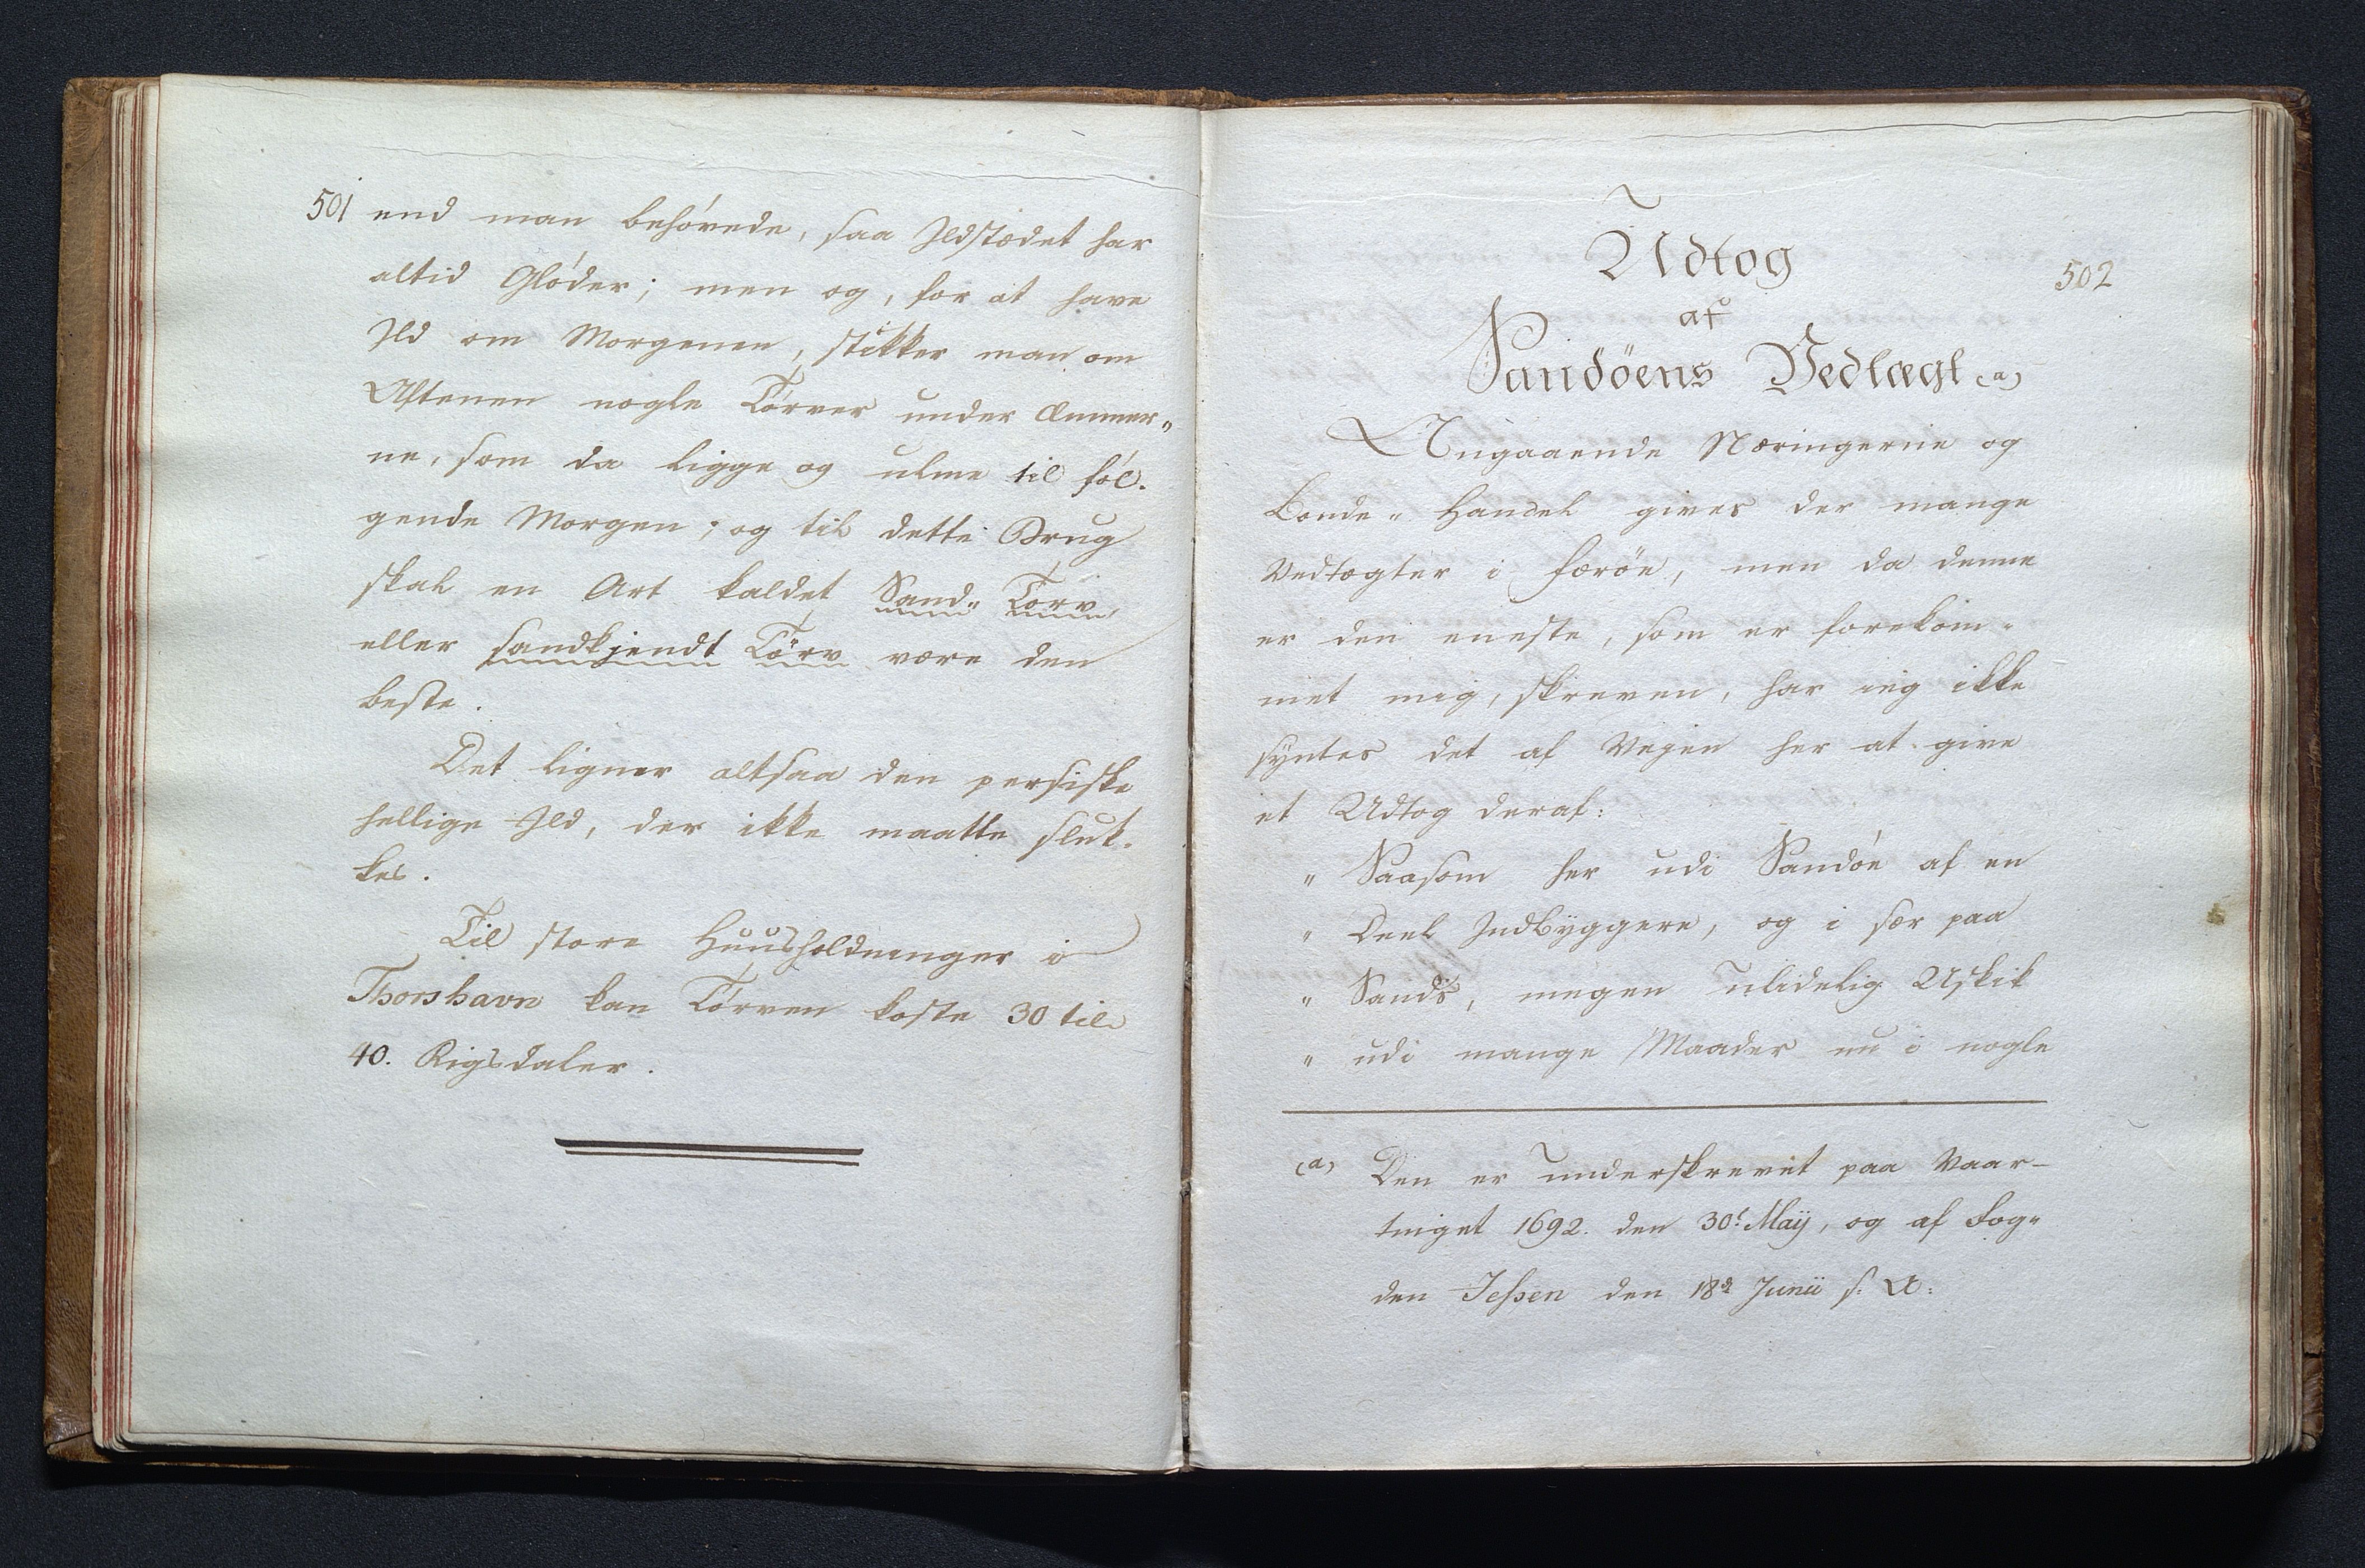 501
end man behøvede, saa Ildstædet har
altid Gløder; men og, for at have
Ild om Morgenen, stikker man om
Aftenen nogle Tørver under Æmmer„
ne, som da ligge og ulme til føl-
gende Morgen; og til dette Brug
skal en Art kaldet Sand„ Torv
eller sandkjendt Törv være den
beste.
Det ligner altsaa den persiske
hellige Ild, der ikke maatte sluk-
kes.
Til store Huusholdninger i
Thorshavn kan Tørven koste 30 til
40. Rigsdaler.
502
Udtog
af
Sandöens Vedtægt (a)
Angaaende Næringerne og
Bonde„ Handel gives der mange
Vedtægter i Færöe, men da denne
er den eneste, som er forekom-
met mig, skreven, har ieg ikke
syntes det af Vejen her at give
et Udtog deraf:
„ Saasom her udi Sandöe af en
„ Deel Indbyggere, og i sær paa
„ Sands, megen ulidelig Uskik
„ udi mange Maader nu i nogle
(a) Den er underskrevet paa Vaar-
tinget 1692. den 30t Maij, og af Fog„
den Jessen den 18de Junii s. A: